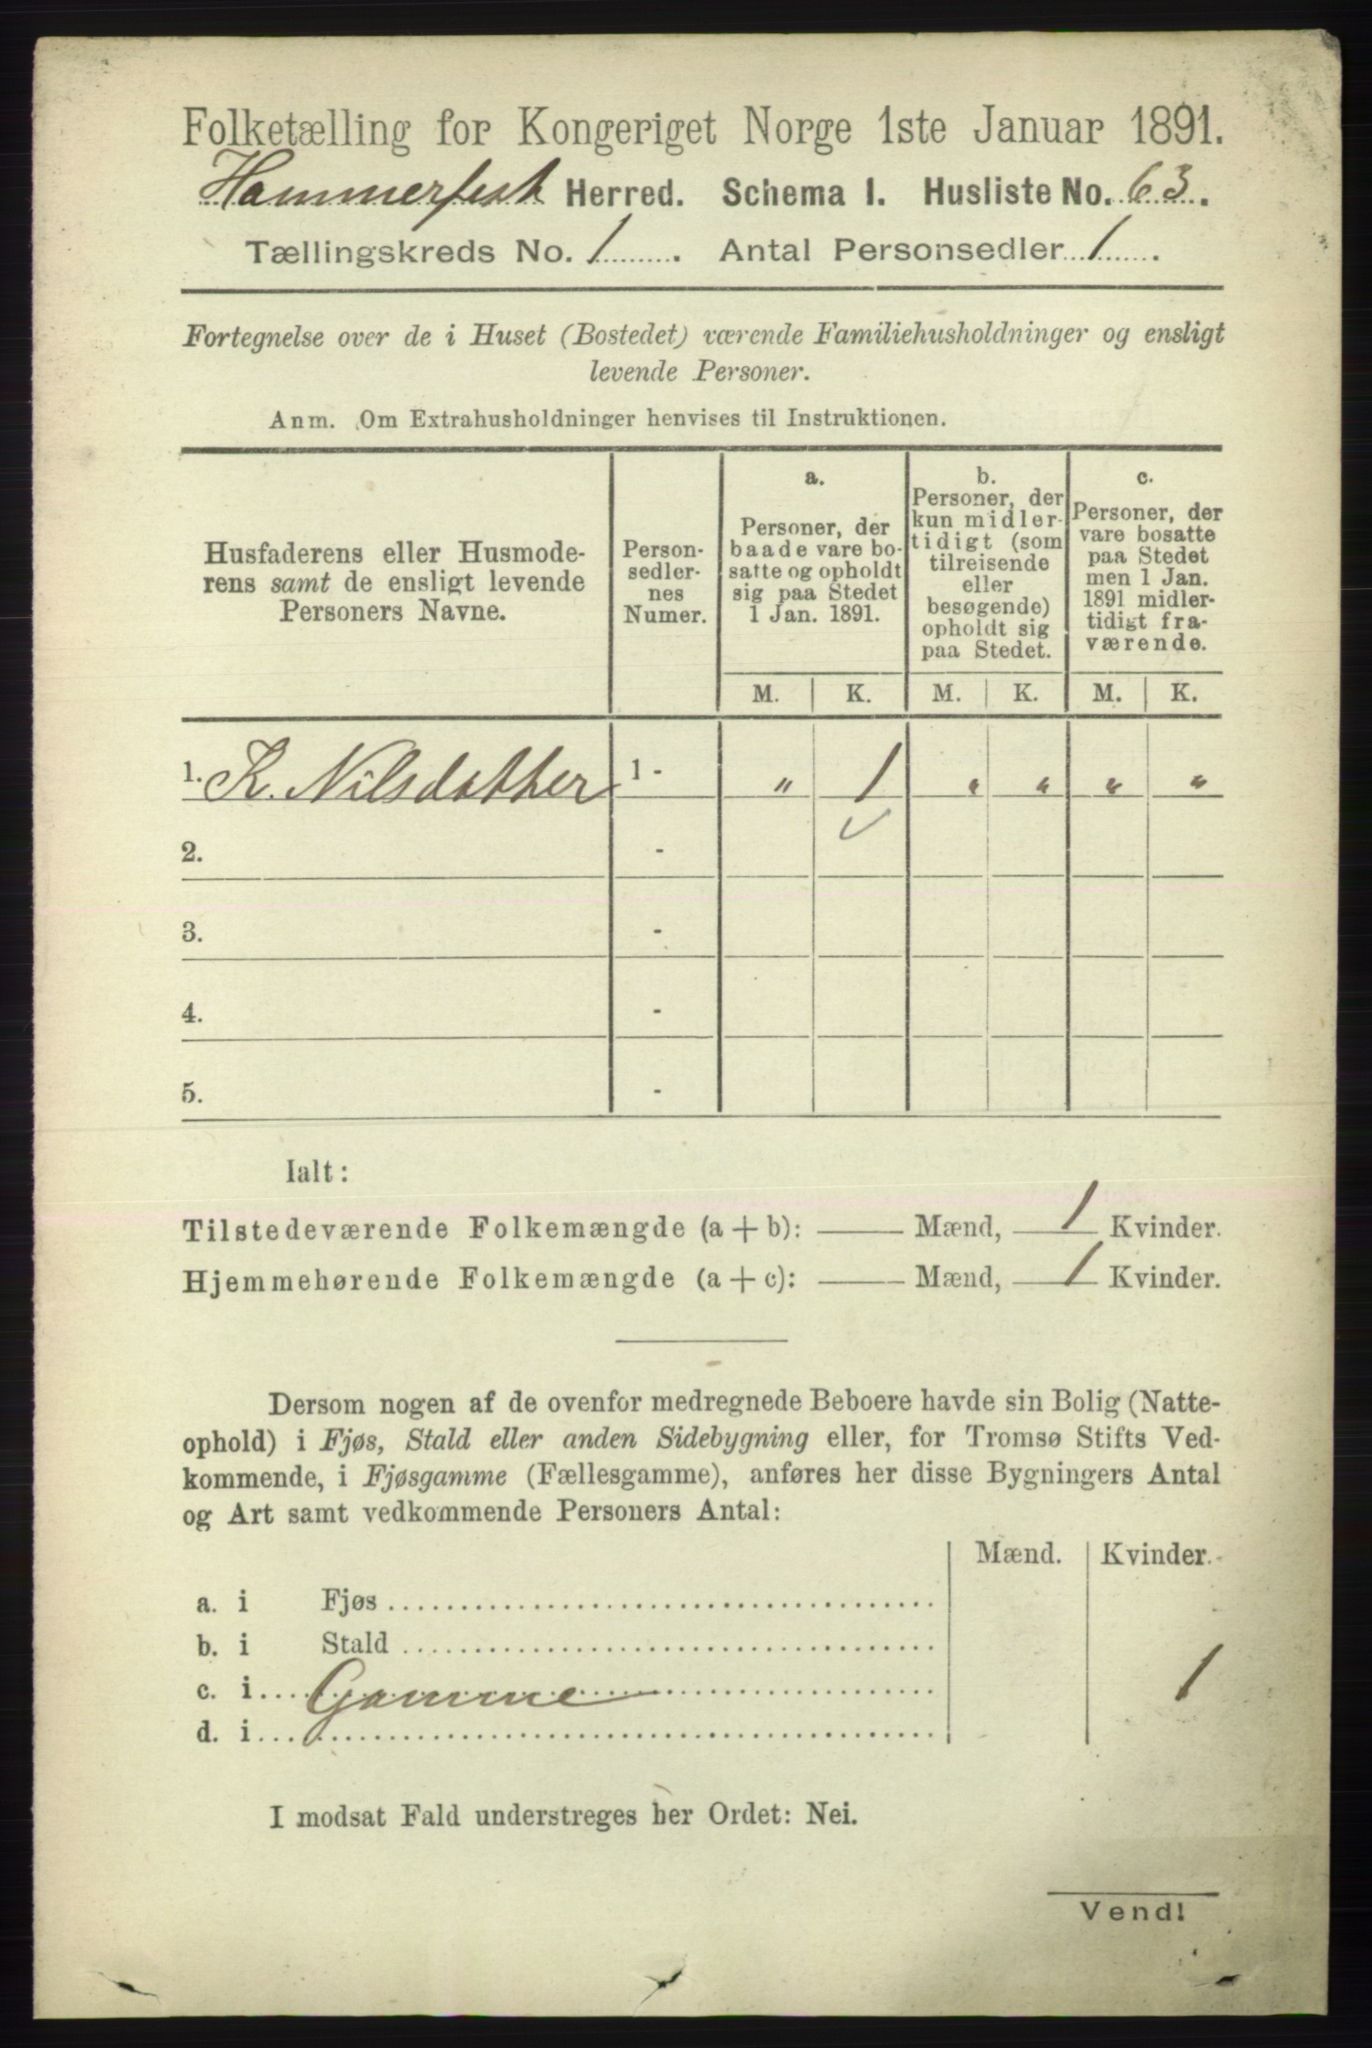 Folketælling for Kongeriget Norge 1ste Januar 1891.
Hammerfest Herred. Schema I. Husliste No. 63.
Tællingskreds No. 1. Antal Personsedler 1.
Fortegnelse over de i Huset (Bostedet) værende Familiehusholdninger og ensligt
levende Personer.
Anm. Om Extrahusholdninger henvises til Instruktionen.
Husfaderens eller Husmode-
rens samt de ensligt levende
Personers Navne.
Person-
sedler-
nes
Numer.
a.
Personer, der
baade vare bo-
satte og opholdt
sig paa Stedet
1 Jan. 1891.
b.
Personer, der
kun midler-
tidigt (som
tilreisende
eller
besøgende)
opholdt sig
paa Stedet.
c.
Personer, der
vare bosatte
paa Stedet
men 1 Jan.
1891 midler-
tidigt fra-
værende.
M. K. M. K. M. K.
1. K. Nilsdatther 1 - " 1 " " " "
2. -
3. -
4. -
5. -
Ialt:
Tilstedeværende Folkemængde (a + b): — Mænd, 1 Kvinder.
Hjemmehørende Folkemængde (a + c): — Mænd, 1 Kvinder.
Dersom nogen af de ovenfor medregnede Beboere havde sin Bolig (Natte-
ophold) i Fjøs, Stald eller anden Sidebygning eller, for Tromsø Stifts Ved-
kommende, i Fjøsgamme (Fællesgamme), anføres her disse Bygningers Antal
og Art samt vedkommende Personers Antal:
Mænd. Kvinder.
a. i Fjøs
b. i Stald
c. i Gamme 1
d. i
I modsat Fald understreges her Ordet: Nei.
Vend!